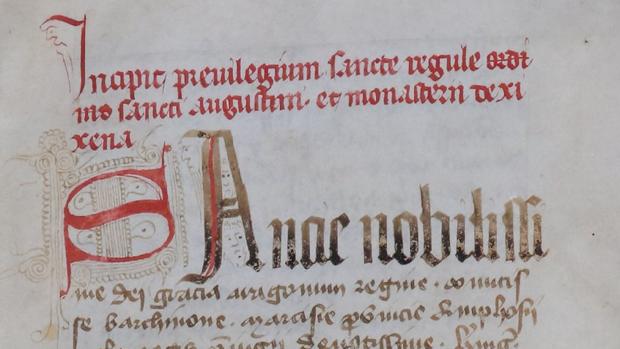 Incipit previlegium sancte regule ordi
nis sancti augustini. et monasterii de xi
xena
SAncie nobilissi
me dei gracia aragonum regine. comitis
se barchinone. marcisie provincie